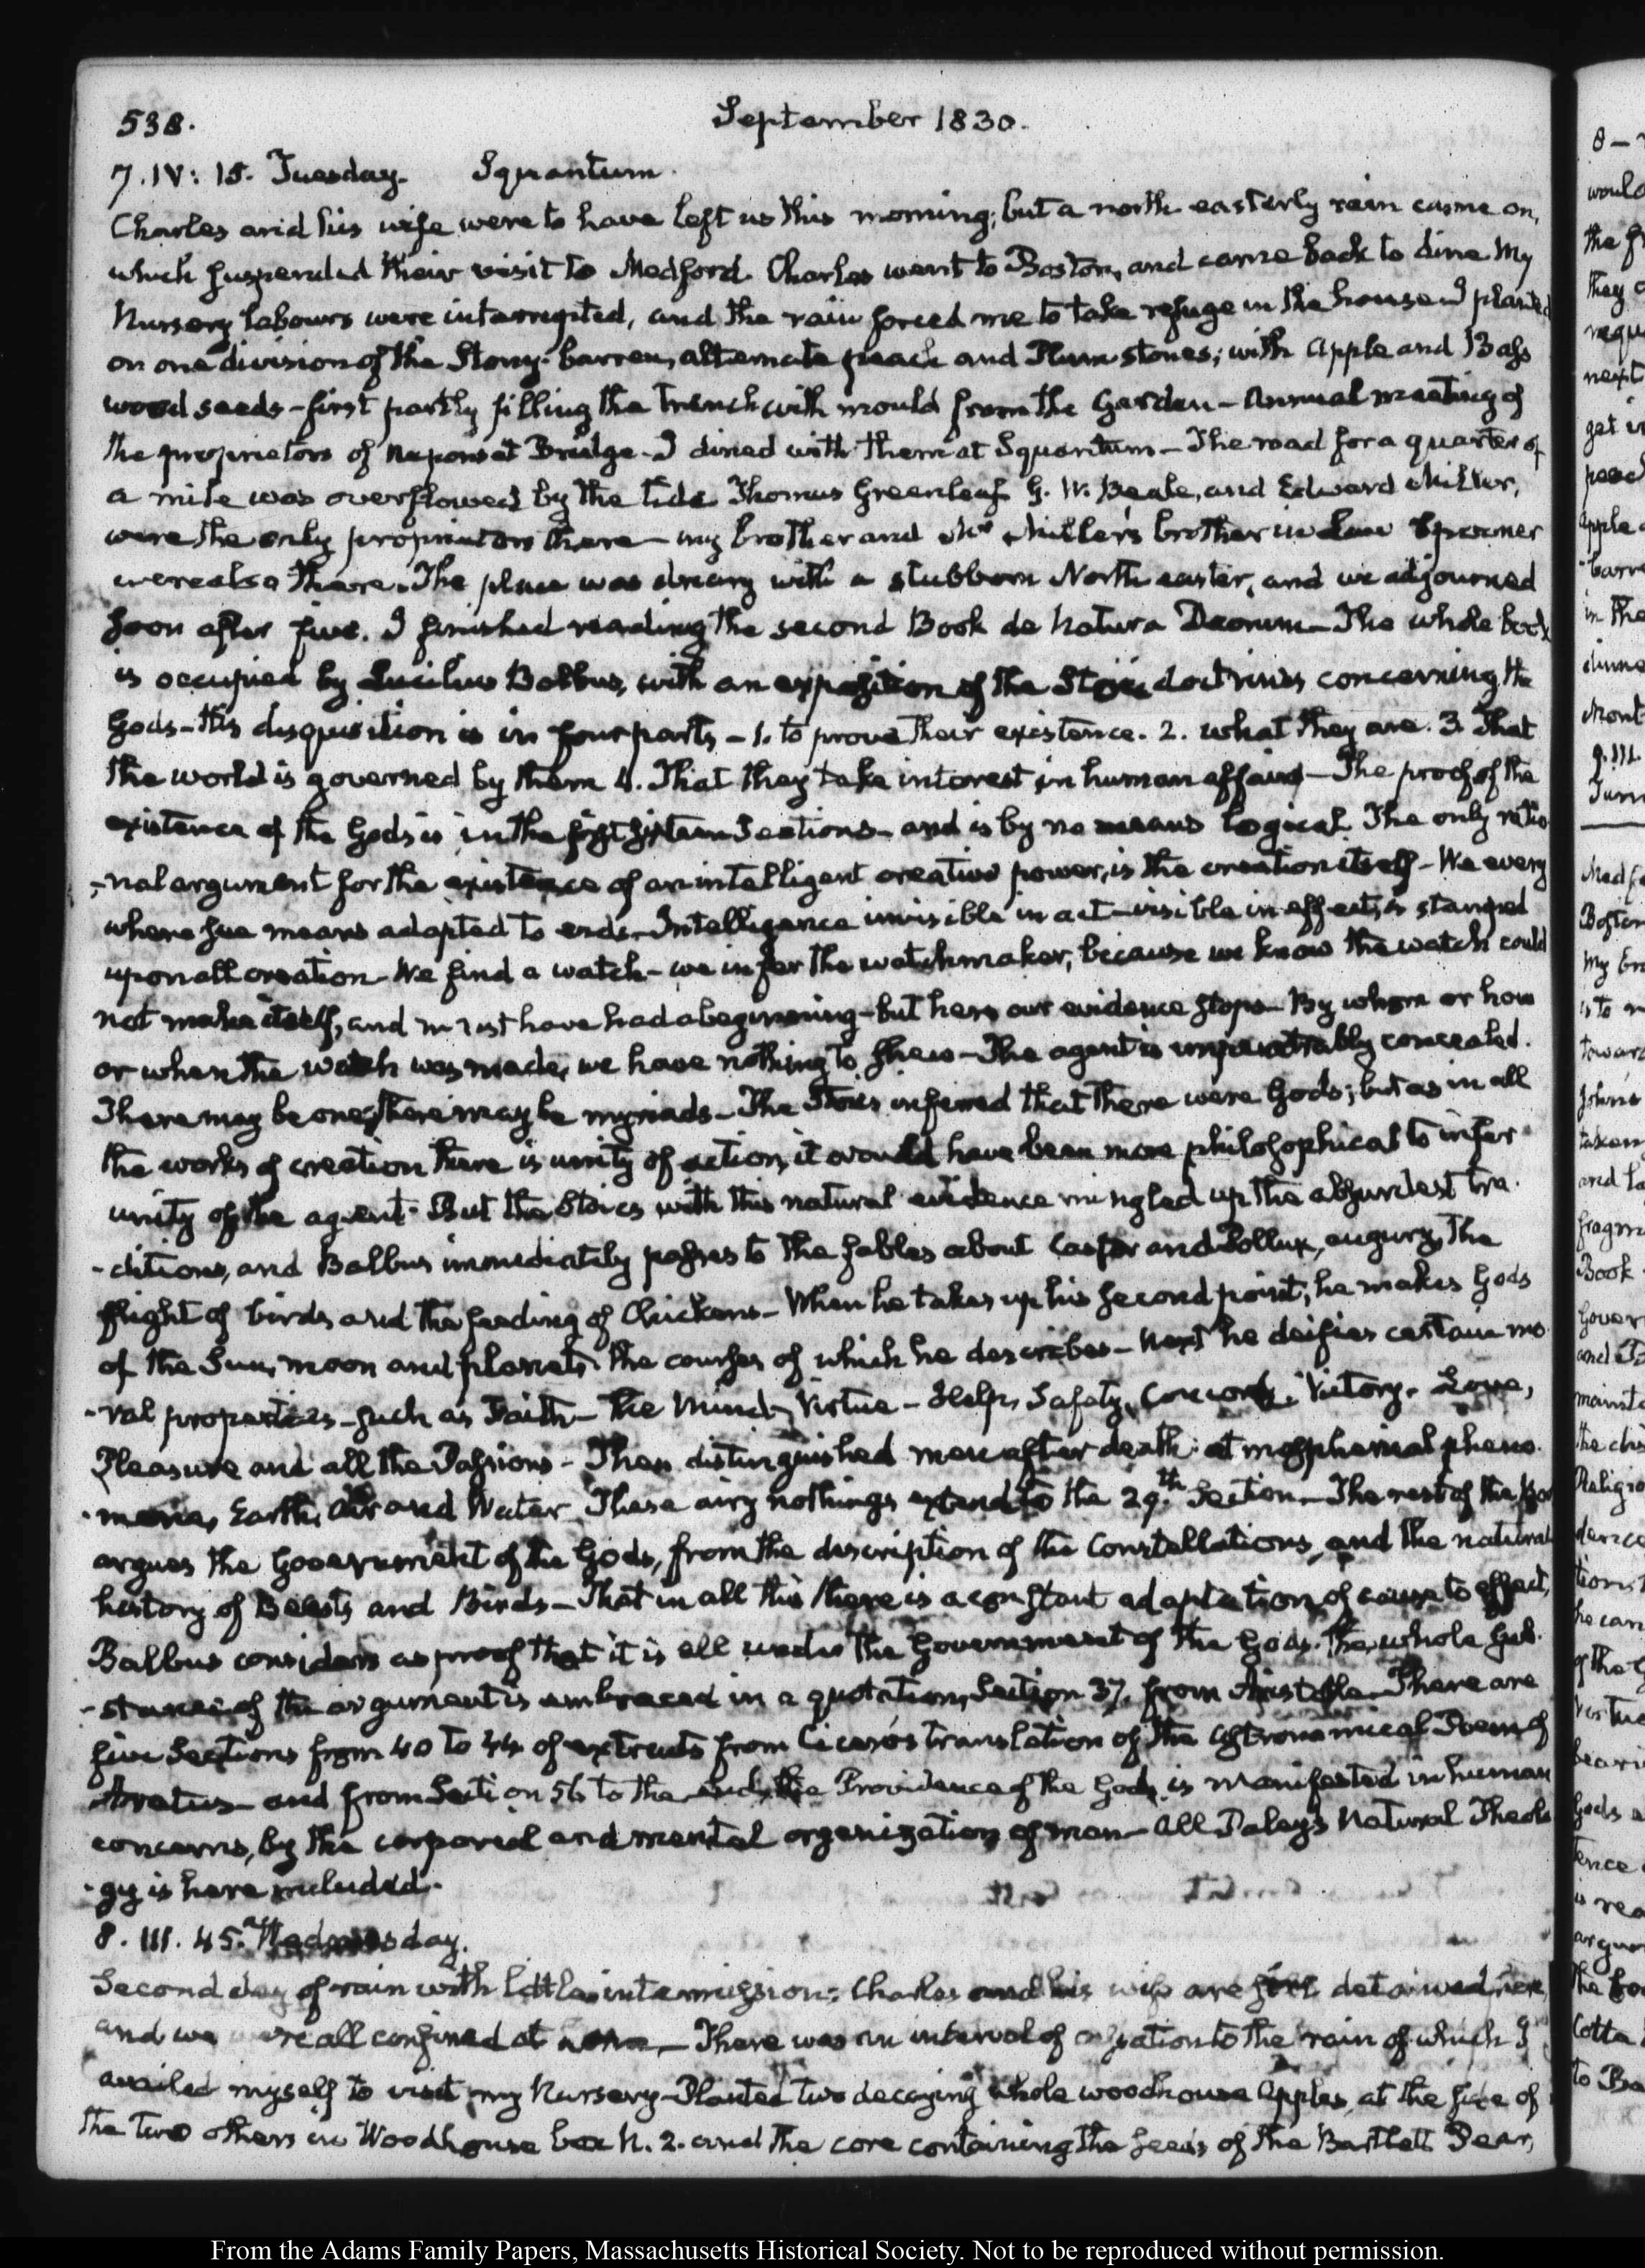 538.
September 1830.
7. IV: 15. Tuesday. Squantum.
Charles and his wife were to have left us this morning; but a north easterly rain came on,
which suspended their visit to Medford. Charles went to Boston, and came back to dine My
Nursery labours were interrupted, and the rain forced me to take refuge in the house I planted
on one division of the Stony-barren, alternate peach and Plum stones; with Apple and Bass
wood seeds - first partly filling the trench with mould from the Garden - Annual meeting of
the proprietors of Neponset Bridge. I dined with them at Squantum - The road for a quarter of
a mile was overflowed by the tide Thomas Greenleaf G. W. Beale, and Edward Miller,
were the only proprietors there - my brother and Mr Miller's brother in Law Spooner
were also there. The place was dreary with a stubborn North easter, and we adjourned
soon after five. I finished reading the second Book de Natura Deorum - The whole book
is occupied by Lucilius Balbus, with an exposition of the Stoic doctrines concerning the
Gods - His disquisition is in four parts - 1. to prove their existence. 2. what they are. 3. That
the world is governed by them 4. That they take interest in human affairs - The proof of the
existence of the Gods is in the first sixteen Sections - and is by no means logical. The only ratio
-nal argument for the existence of an intelligent creative power, is the creation itself - We every
where see means adapted to ends. Intelligence invisible in act - visible in effects, is stamped
upon all creation - We find a watch - we infer the watchmaker, because we know the watch could
not make itself, and must have had a beginning - but here our evidence stops - By whom or how
or when the watch was made, we have nothing to shew - The agent is impenetrably concealed.
There may be one, there may be myriads - The Stoics inferred that there were Gods; but as in all
the works of creation there is unity of action, it would have been more philosophical to infer
unity of the agent - But the Stoics with this natural evidence mingled up the absurdest tra-
-ditions, and Balbus immediately passes to the fables about Castor and Pollux, augury, the
flight of birds, and the feeding of Chickens - When he takes up his second point, he makes Gods
of the Sun, moon and planets, the courses of which he describes - Next he deifies certain mo-
-ral properties - such as Faith - the Mind - Virtue - Help, Safety, Concord, Victory, Love,
Pleasure and all the Passions - Then distinguished men after death: atmospherical pheno-
-mena, Earth, Air and Water. These airy nothings extend to the 29.th Section - The rest of the Boo
argues the Government of the Gods, from the description of the Constellations, and the natural
history of Beasts and Birds - That in all this there is a constant adaptation of cause to effect,
Balbus considers as proof that it is all under the Government of the Gods. The whole sub-
-stance of the argument is embraced in a quotation, Section 37. from Aristotle. There are
five Sections from 40 to 44 of extracts from Cicero's translation of the Astronomical Poem of
Aratus - and from Section 56 to the end, the Providence of the Gods is manifested in human
concerns, by the corporeal and mental organization of man - All Paley's Natural Theolo
-gy is here included.
8. III. 45. Wednesday.
Second day of rain with little intermission: Charles and his wife are still detained here
and we were all confined at home - There was an interval of to the rain of which I
availed myself to visit my Nursery - Planted two decaying whole woodhouse Apples, at the side of
the two others in Woodhouse box N. 2. and the core containing the seeds of the Bartlett Pear,
From the Adams Family Papers, Massachusetts Historical Society. Not to be reproduced without permission.